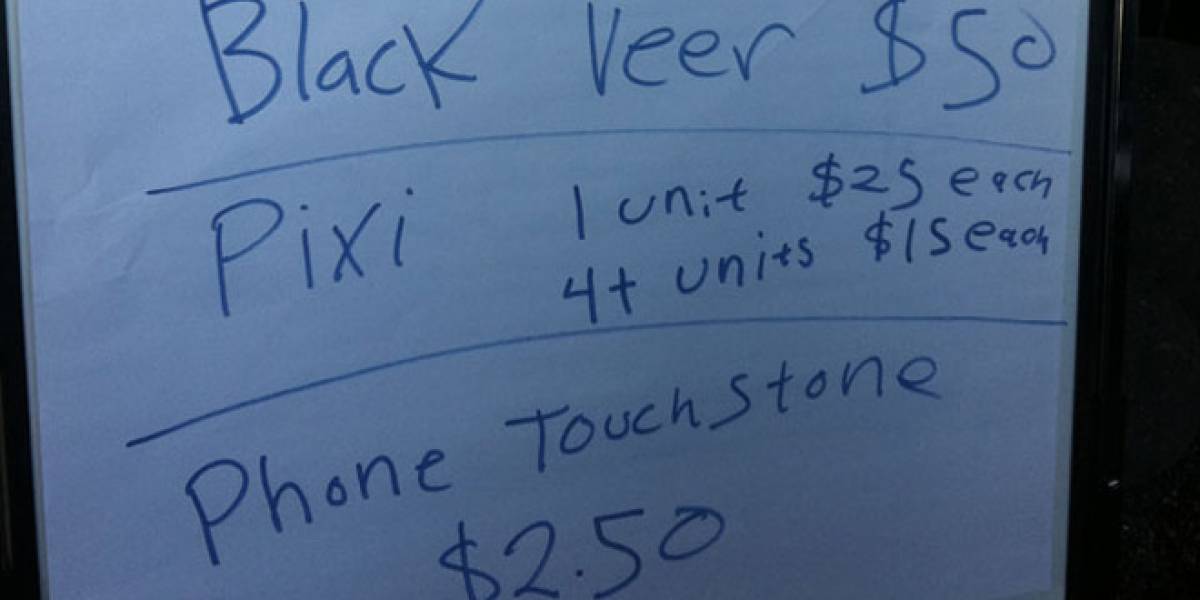 Black Veer $50
Pixi 1 unit $25 each
4+ units $15 each
Phone Touchstone
$2.50